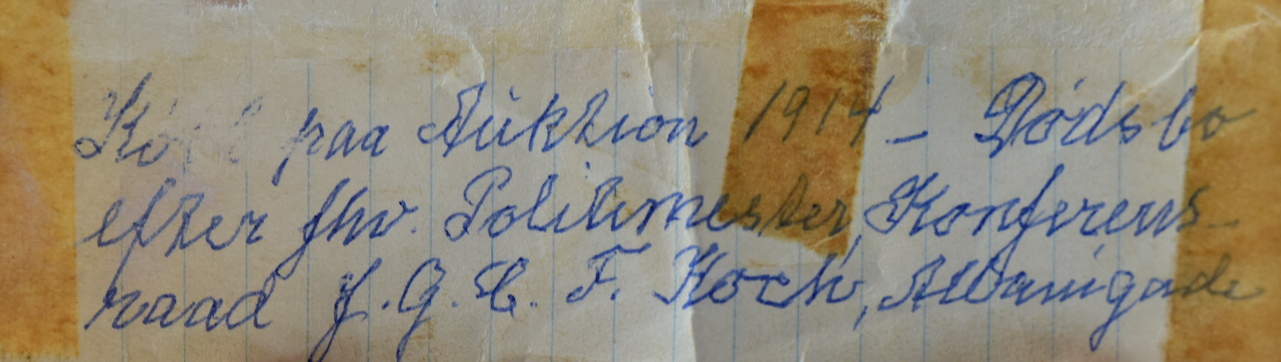 Købt paa Auktion 1914 - Dødsbo
efter fhv. Politimester, Konferens-
raad J. G. C. F. Koch, Albanigade